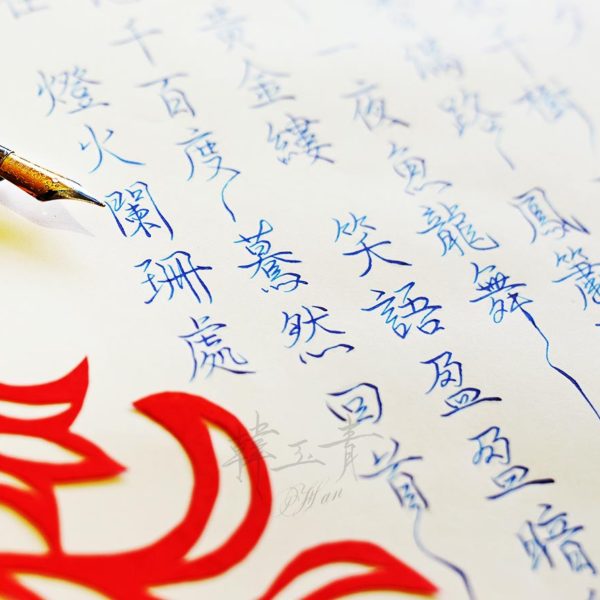 千樹
滿路 鳳簫
一夜魚龍舞
黃金縷 笑語盈盈暗
千百度 驀然回首
燈火闌珊處
韓玉青
Han